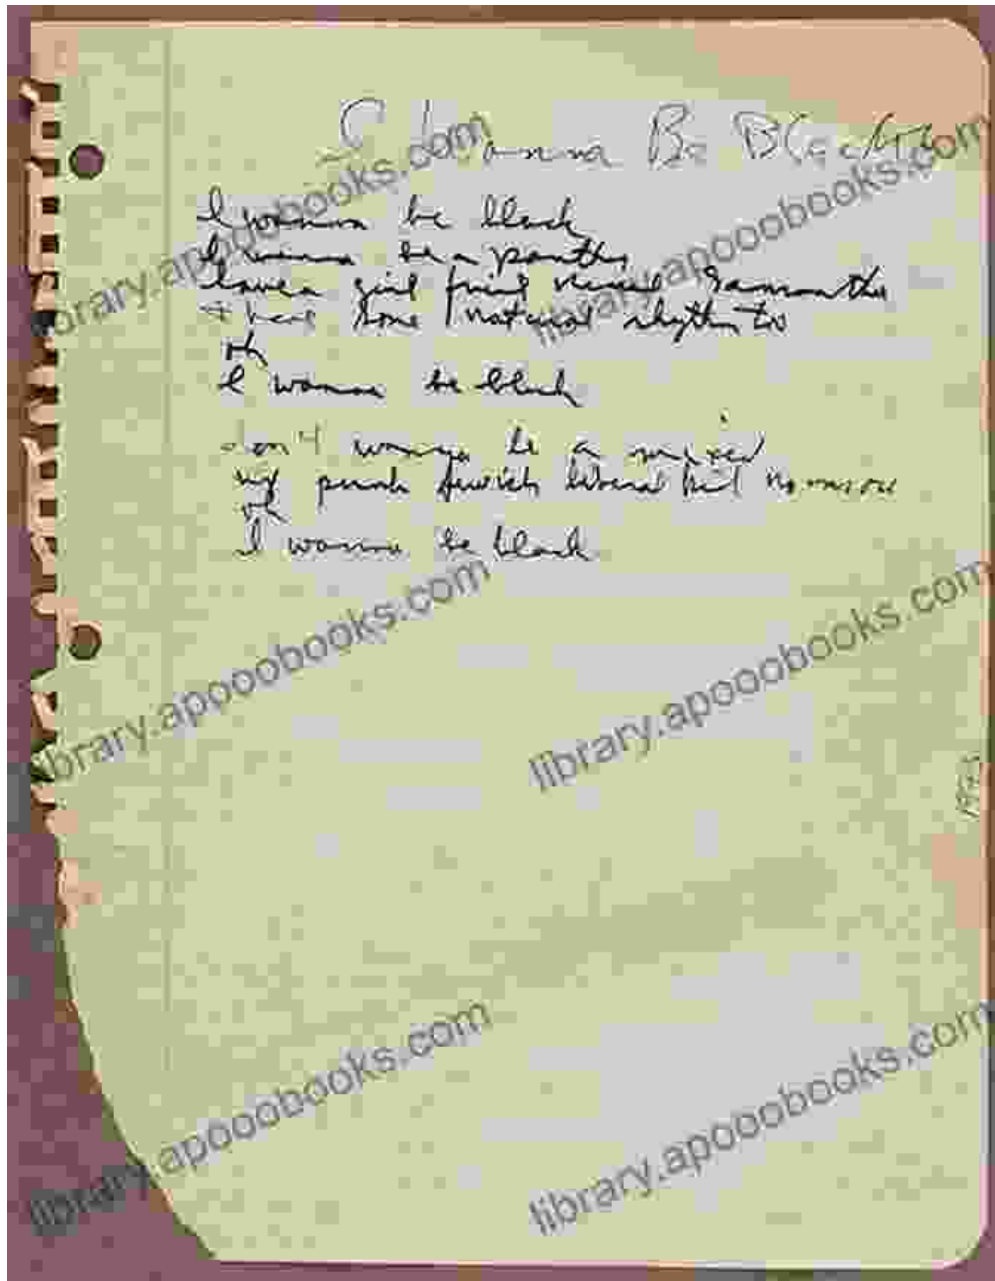 I wanna Be Black
I wanna be black
I wanna be a panther
have a girl friend named Samantha
+ have some natural rhythm too
oh
I wanna be black
don't wanna be a
Jewish liberal no more
oh
I wanna be black
library.apooobooks.com
library.apooobooks.com
library.apooobooks.com
library.apooobooks.com
library.apooobooks.com
library.apooobooks.com